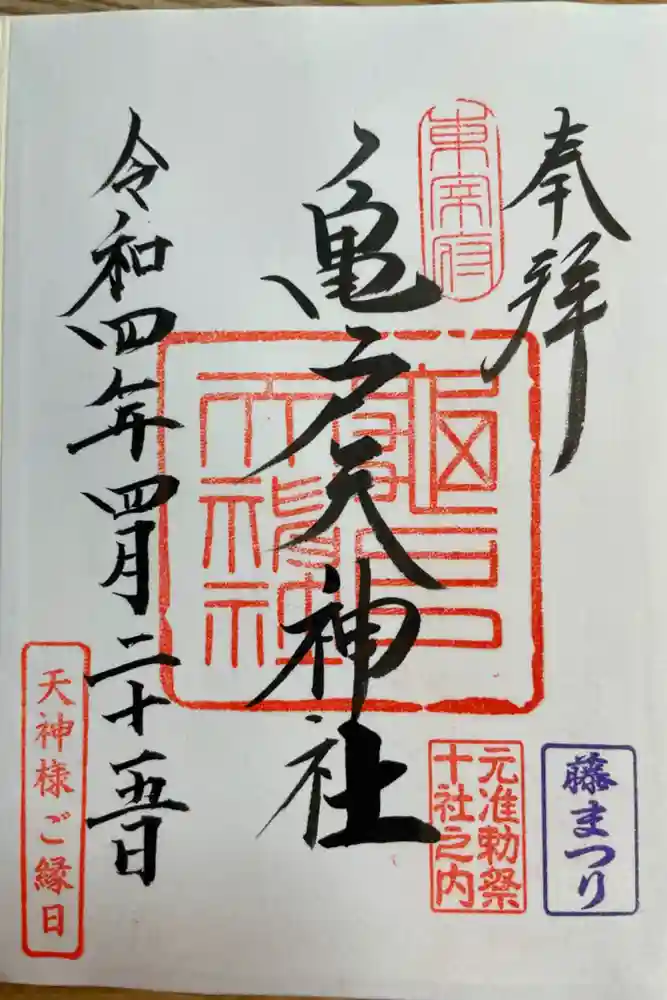 奉拝
東宰府
藤まつり
亀戸天神社
元准勅祭
十社之内
令和四年四月二十五日
天神様ご縁日